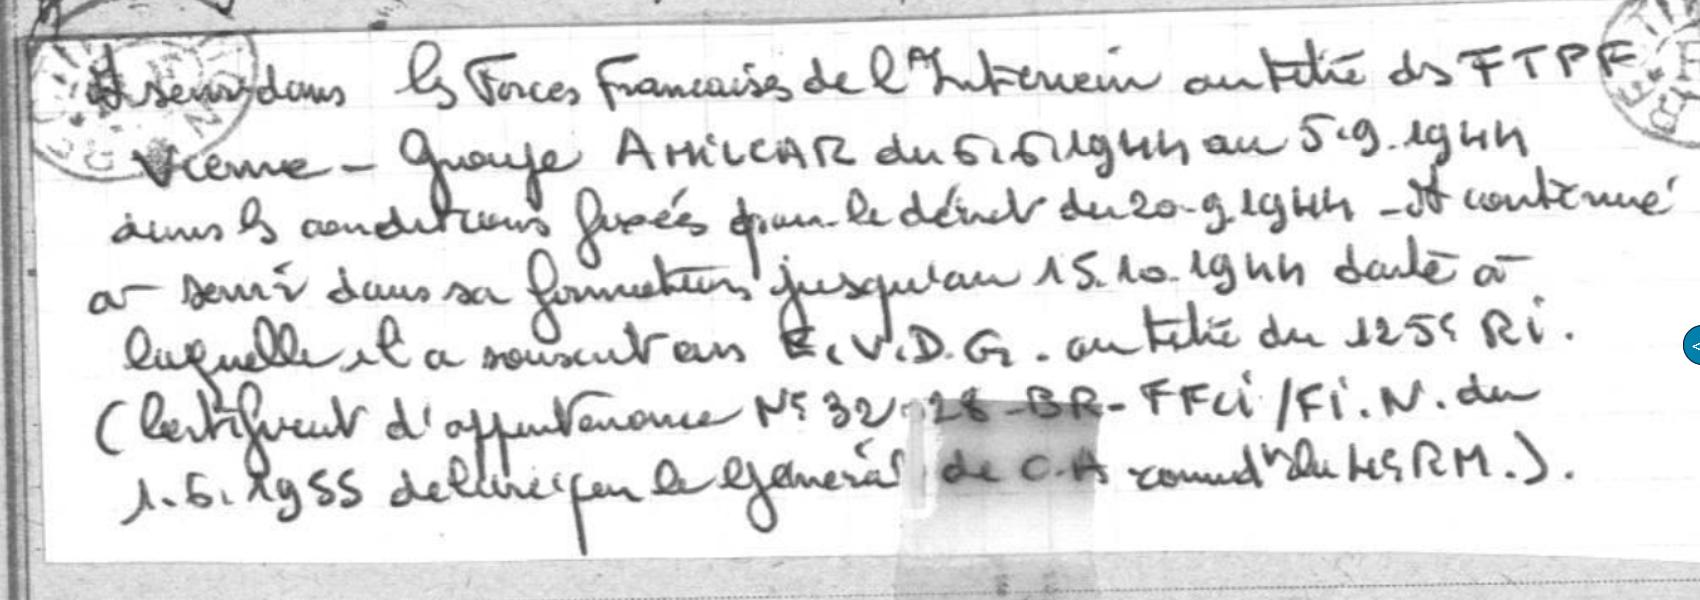 A servi dans les Forces Françaises de l'Intérieur au titre des FTPF
Vienne - Groupe AMILCAR du 6.6.1944 au 5.9.1944
dans les conditions fixées par le décret du 20.9.1944 - A continué
à servir dans sa formation jusqu'au 15.10.1944 date à
laquelle il a souscrit un E.V.D.G. au titre du 125e RI.
(Certificat d'appartenance N° 32 28-BR-FFCI/FI.N. du
1.6.1955 délivré par le Général de C.A command^t la 4e RM.).